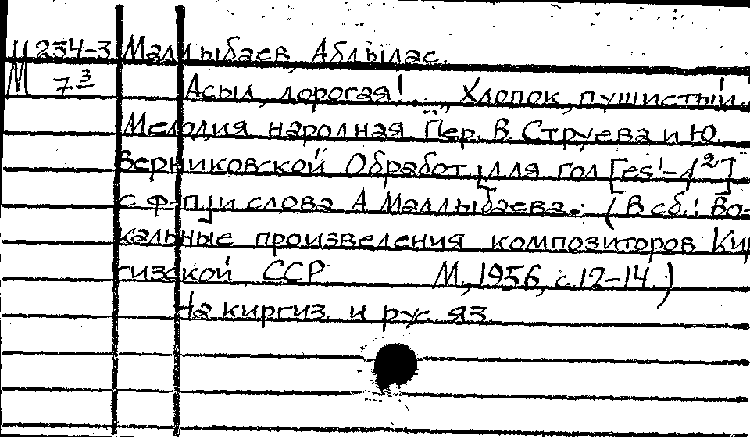 М 234-3 Малдыбаев, Абдылас.
7.³ Асыл, дорогая!..., Хлопок пушистый.
Мелодия народная. Пер. В. Струева и Ю.
Верниковской Обработ. для гол. [es¹-f²]
с ф-п; и слова А. Малдыбаева. (В сб.: Во-
кальные произведения композиторов Кир-
гизской ССР М., 1956, с. 12-14.)
На киргиз. и рус. яз.